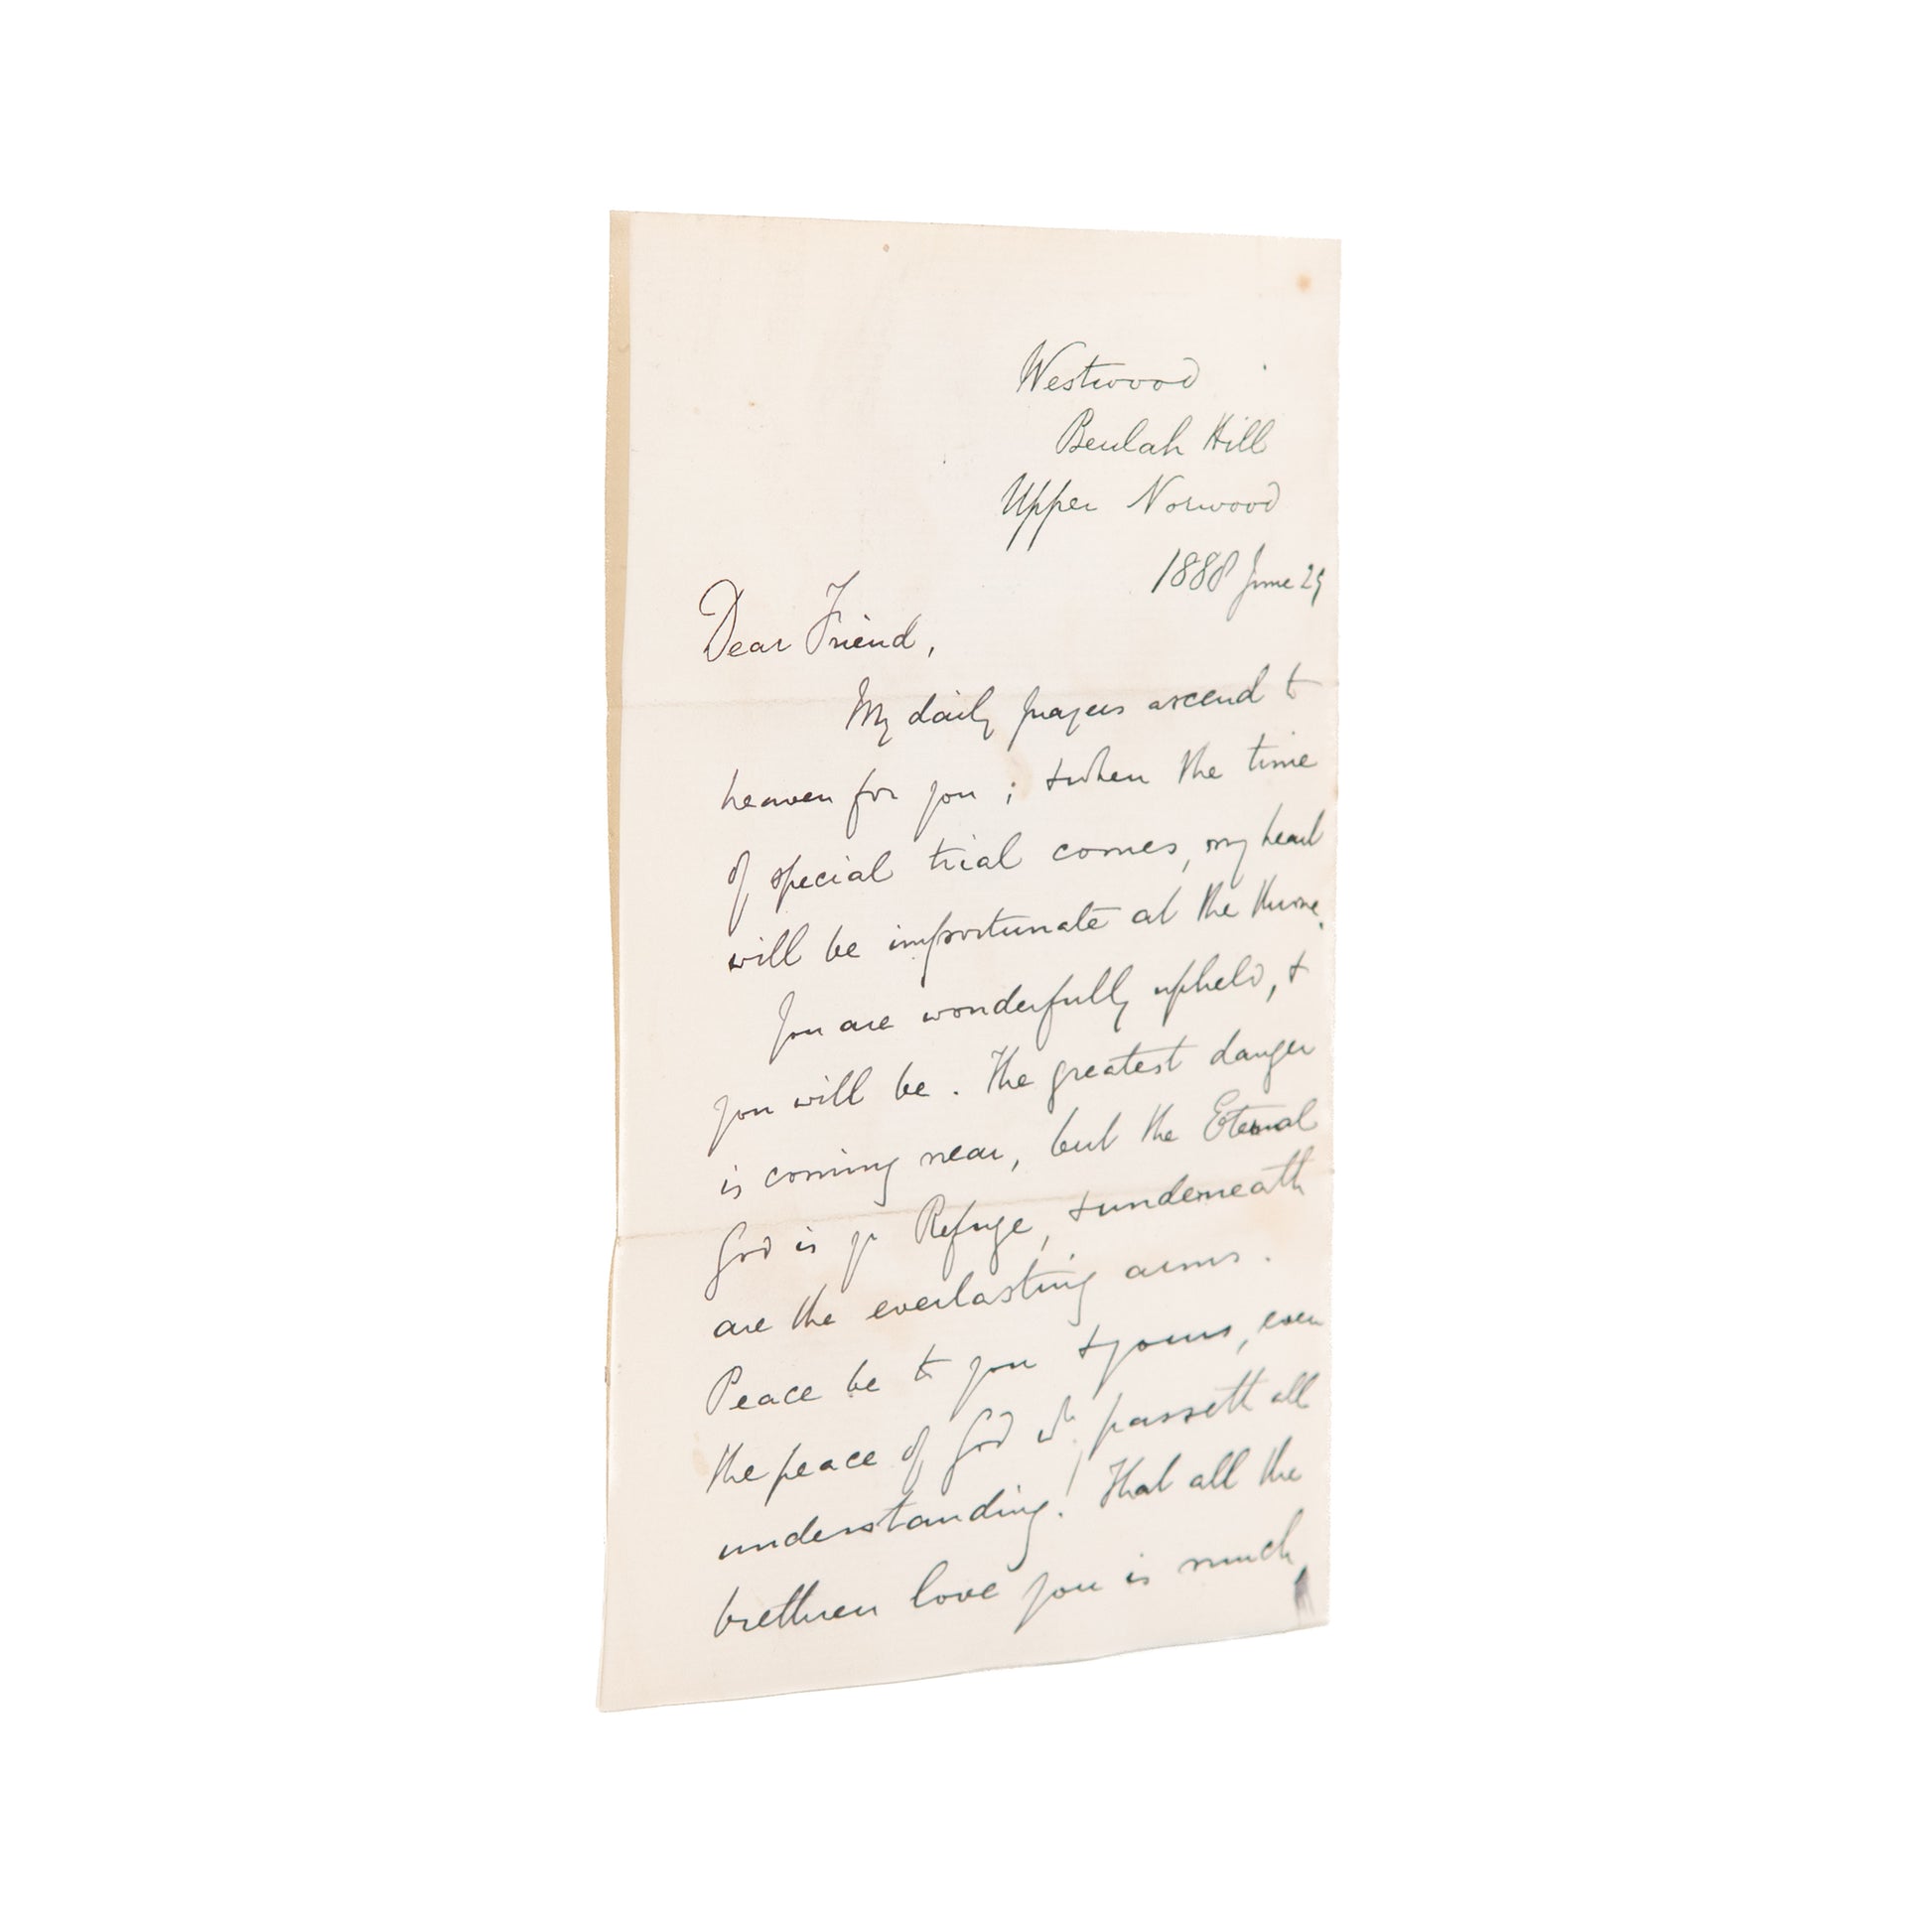 Westwood
Beulah Hill
Upper Norwood
1888 June 29
Dear Friend,
My daily prayers ascend to
heaven for you ; & when the time
of special trial comes, my heart
will be importunate at the throne.
You are wonderfully upheld, &
you will be. The greatest danger
is coming near, but the Eternal
God is yr Refuge, & underneath
are the everlasting arms.
Peace be to you & yours, even
the peace of God wh passeth all
understanding! That all the
brethren love you is much,